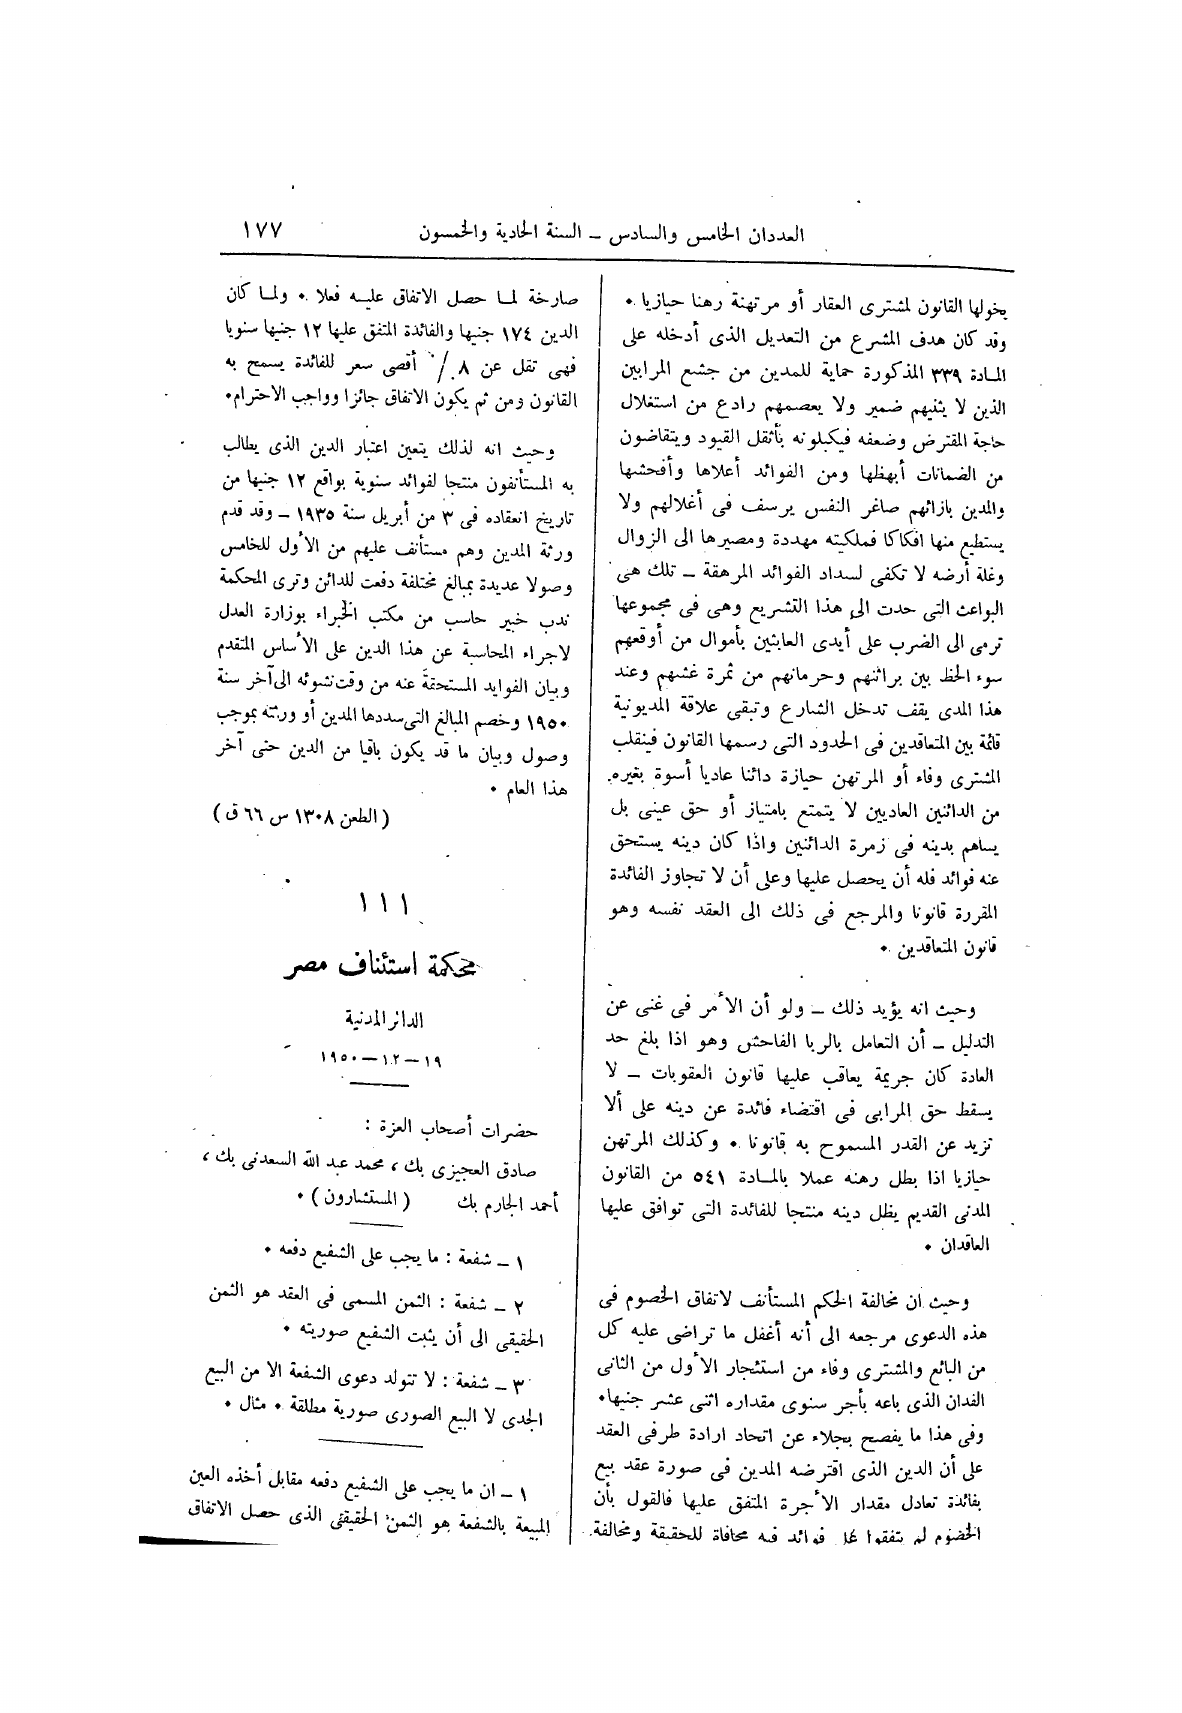 العددان الخامس والسادس ــ السنة الحادية والخمسون ١٧٧
يخولها القانون لمشترى العقار أو مرتهنة رهنا حيازيا .
وقد كان هدف المشرع من التعديل الذى أدخله على
المادة ٣٣٩ المذكورة حماية للمدين من جشع المرابين
الذين لا يثنيهم ضمير ولا يعصمهم رادع من استغلال
حاجة المقترض وضعفه فيكبلونه بأثقل القيود ويتقاضون
من الضمانات أبهظها ومن الفوائد أعلاها وأفحشها
والمدين بازائهم صاغر النفس يرسف فى أغلالهم ولا
يستطيع منها افكاكا فملكيته مهددة ومصيرها الى الزوال
وغلة أرضه لا تكفى لسداد الفوائد المرهقة ــ تلك هى
البواعث التى حدت الى هذا التشريع وهى فى مجموعها
ترمى الى الضرب على أيدى العابثين بأموال من أوقعهم
سوء الحظ بين براثنهم وحرمانهم من ثمرة غشهم وعند
هذا المدى يقف تدخل الشارع وتبقى علاقة المديونية
قائمة بين المتعاقدين فى الحدود التى رسمها القانون فينقلب
المشترى وفاء أو المرتهن حيازة دائنا عاديا أسوة بغيره
من الدائنين العاديين لا يتمتع بامتياز أو حق عينى بل
يساهم بدينه فى زمرة الدائنين واذا كان دينه يستحق
عنه فوائد فله أن يحصل عليها وعلى أن لا تجاوز الفائدة
المقررة قانونا والمرجع فى ذلك الى العقد نفسه وهو
قانون المتعاقدين .
وحيث انه يؤيد ذلك ــ ولو أن الأمر فى غنى عن
التدليل ــ أن التعامل بالربا الفاحش وهو اذا بلغ حد
العادة كان جريمة يعاقب عليها قانون العقوبات ــ لا
يسقط حق المرابى فى اقتضاء فائدة عن دينه على ألا
تزيد عن القدر المسموح به قانونا . وكذلك المرتهن
حيازيا اذا بطل رهنه عملا بالمادة ٥٤١ من القانون
المدنى القديم يظل دينه منتجا للفائدة التى توافق عليها
العاقدان .
وحيث ان مخالفة الحكم المستأنف لاتفاق الخصوم فى
هذه الدعوى مرجعه الى أنه أغفل ما تراضى عليه كل
من البائع والمشترى وفاء من استئجار الأول من الثانى
الفدان الذى باعه بأجر سنوى مقداره اثنى عشر جنيها .
وفى هذا ما يفصح بجلاء عن اتحاد ارادة طرفى العقد
على أن الدين الذى اقترضه المدين فى صورة عقد بيع
بفائدة تعادل مقدار الأجرة المتفق عليها فالقول بأن
الخصوم لم يتفقوا على فوائد فيه مجافاة للحقيقة ومخالفة
صارخة لما حصل الاتفاق عليه فعلا . ولما كان
الدين ١٧٤ جنيها والفائدة المتفق عليها ١٢ جنيها سنويا
فهى تقل عن ٨ ٪ أقصى سعر للفائدة يسمح به
القانون ومن ثم يكون الاتفاق جائزا وواجب الاحترام .
وحيث انه لذلك يتعين اعتبار الدين الذى يطالب
به المستأنفون منتجا لفوائد سنوية بواقع ١٢ جنيها من
تاريخ انعقاده فى ٣ من أبريل سنة ١٩٣٥ ــ وقد قدم
ورثة المدين وهم مستأنف عليهم من الأول للخامس
وصولا عديدة بمبالغ مختلفة دفعت للدائن وترى المحكمة
ندب خبير حاسب من مكتب الخبراء بوزارة العدل
لاجراء المحاسبة عن هذا الدين على الأساس المتقدم
وبيان الفوايد المستحقة عنه من وقت نشوئه الى آخر سنة
١٩٥٠ وخصم المبالغ التى سددها المدين أو ورثته بموجب
وصول وبيان ما قد يكون باقيا من الدين حتى آخر
هذا العام .
( الطعن ١٣٠٨ س ٦٦ ق )
١١١
محكمة استئناف مصر
الدائر المدنية
١٩ ــ ١٢ ــ ١٩٥٠
حضرات أصحاب العزة :
صادق العجيزى بك ، محمد عبد الله السعدنى بك ،
أحمد الجارم بك ( المستشارون ) .
١ ــ شفعة : ما يجب على الشفيع دفعه .
٢ ــ شفعة : الثمن المسمى فى العقد هو الثمن
الحقيقى الى أن يثبت الشفيع صوريته .
٣ ــ شفعة : لا تتولد دعوى الشفعة الا من البيع
الجدى لا البيع الصورى صورية مطلقة . مثال .
١ ــ ان ما يجب على الشفيع دفعه مقابل أخذه العين
المبيعة بالشفعة هو الثمن الحقيقى الذى حصل الاتفاق